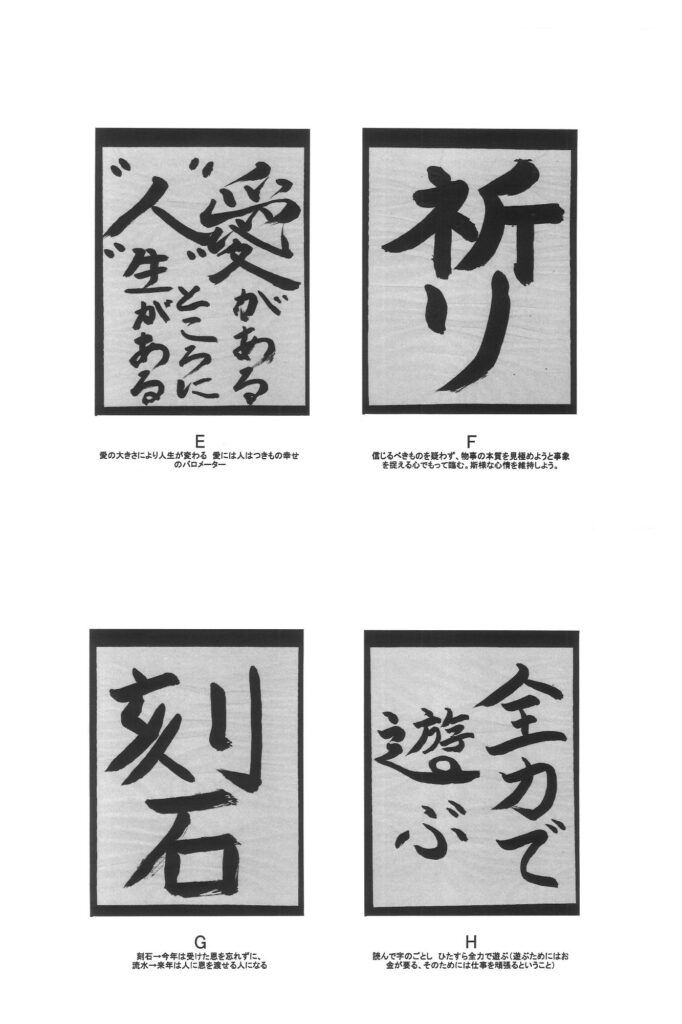 愛がある
"人"ところに
"生がある
E
愛の大きさにより人生が変わる　愛には人はつきもの幸せ
のバロメーター
祈り
F
信じるべきものを疑わず、物事の本質を見極めようと事象
を捉える心でもって臨む。斯様な心情を維持しよう。
刻石
G
刻石→今年は受けた恩を忘れずに、
流水→来年は人に恩を渡せる人になる
全力で
遊ぶ
H
読んで字のごとし　ひたすら全力で遊ぶ（遊ぶためにはお
金が要る、そのためには仕事を頑張るということ）